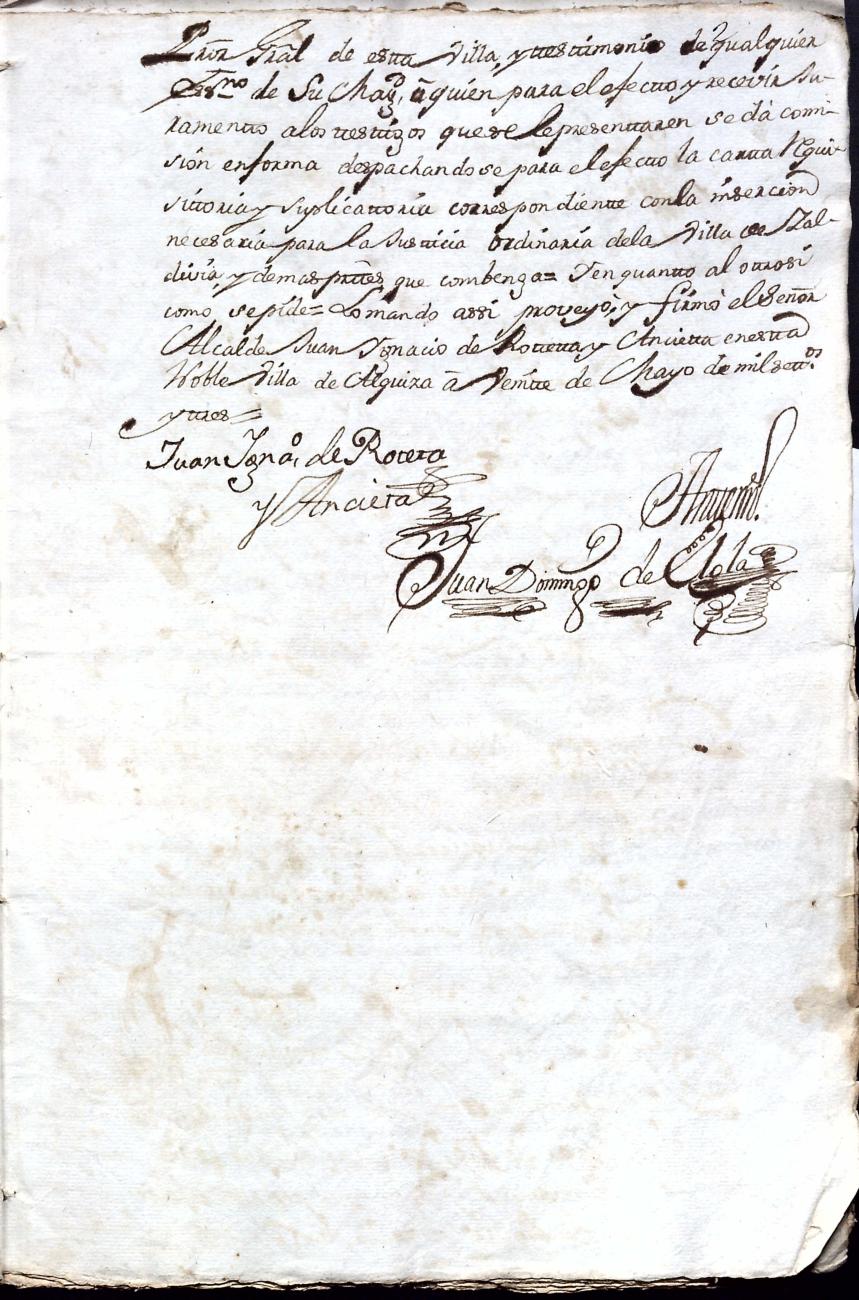 Pror Gral de estta Villa, y ttesttimonio de qualquier
Essno de Su Magd, â quien para el efectto y recevir Ju-
ramentto a los ttesttigos que se le presenttaren se dà comi-
sión en forma despachandose para el efectto la cartta requi-
sittoria y suplicattoria correspondientte con la inserción
necesaria para la Justicia ordinaria de la Villa de Zal-
divia, y demas parttes que combenga= Y en quantto al ottrosi
como se pide= Lo mando assi proveyo, y firmò el Señor
Alcalde Juan Ygnacio de Rottetta y Ancietta en estta
Noble Villa de Alquiza â Veintte de Mayo de mil settos
y ttres=
Juan Ygnaº de Roteta
y Ancieta
Antemi.
Juan Domingo de Elola